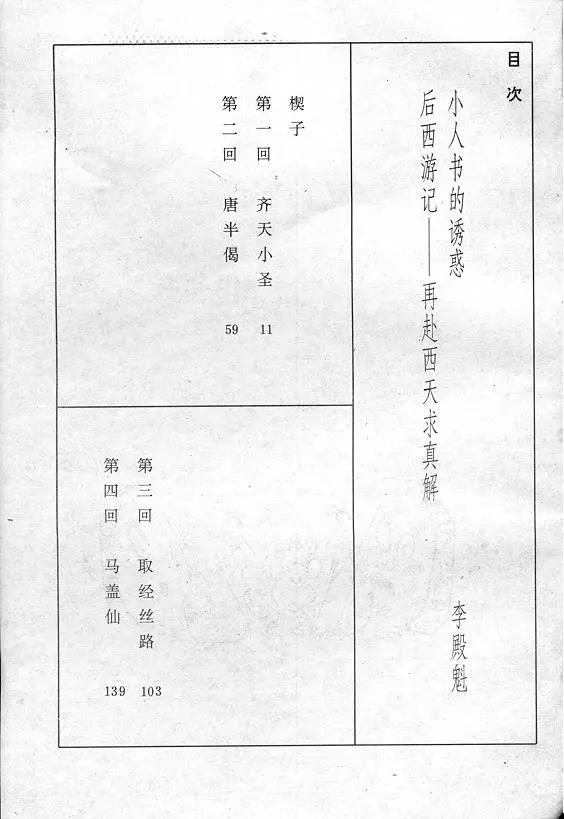 目次
小人书的诱惑 李殿魁
后西游记——再赴西天求真解
楔子
第一回 齐天小圣 11
第二回 唐半偈 59
第三回 取经丝路 103
第四回 马盖仙 139